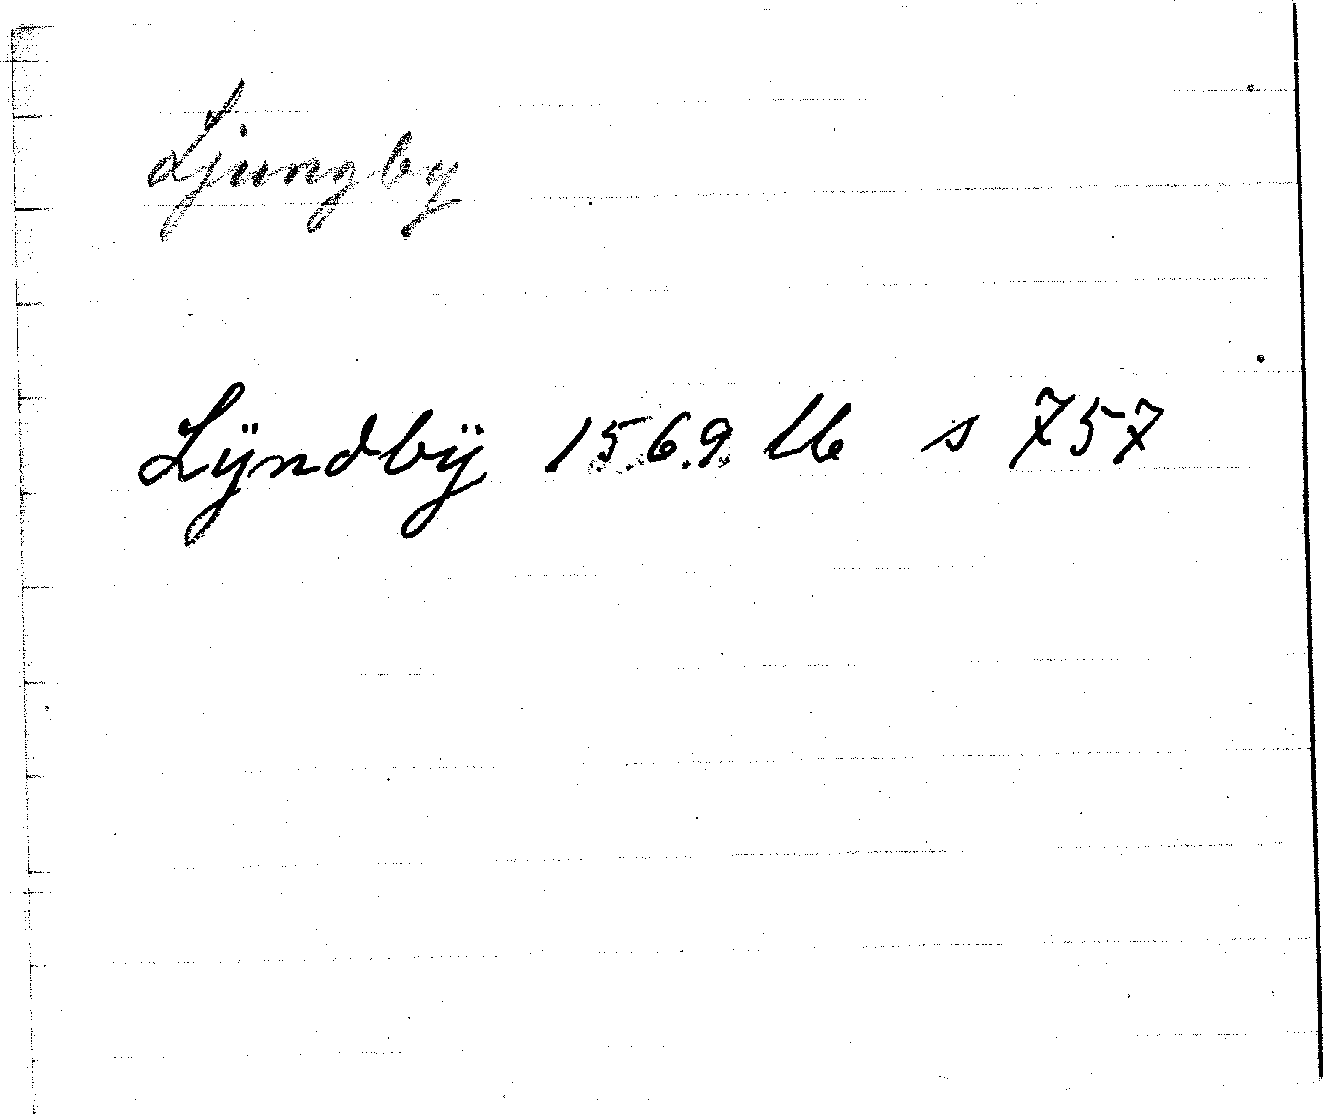 Ljungby
Lÿndbÿ 1569 Lb s 757